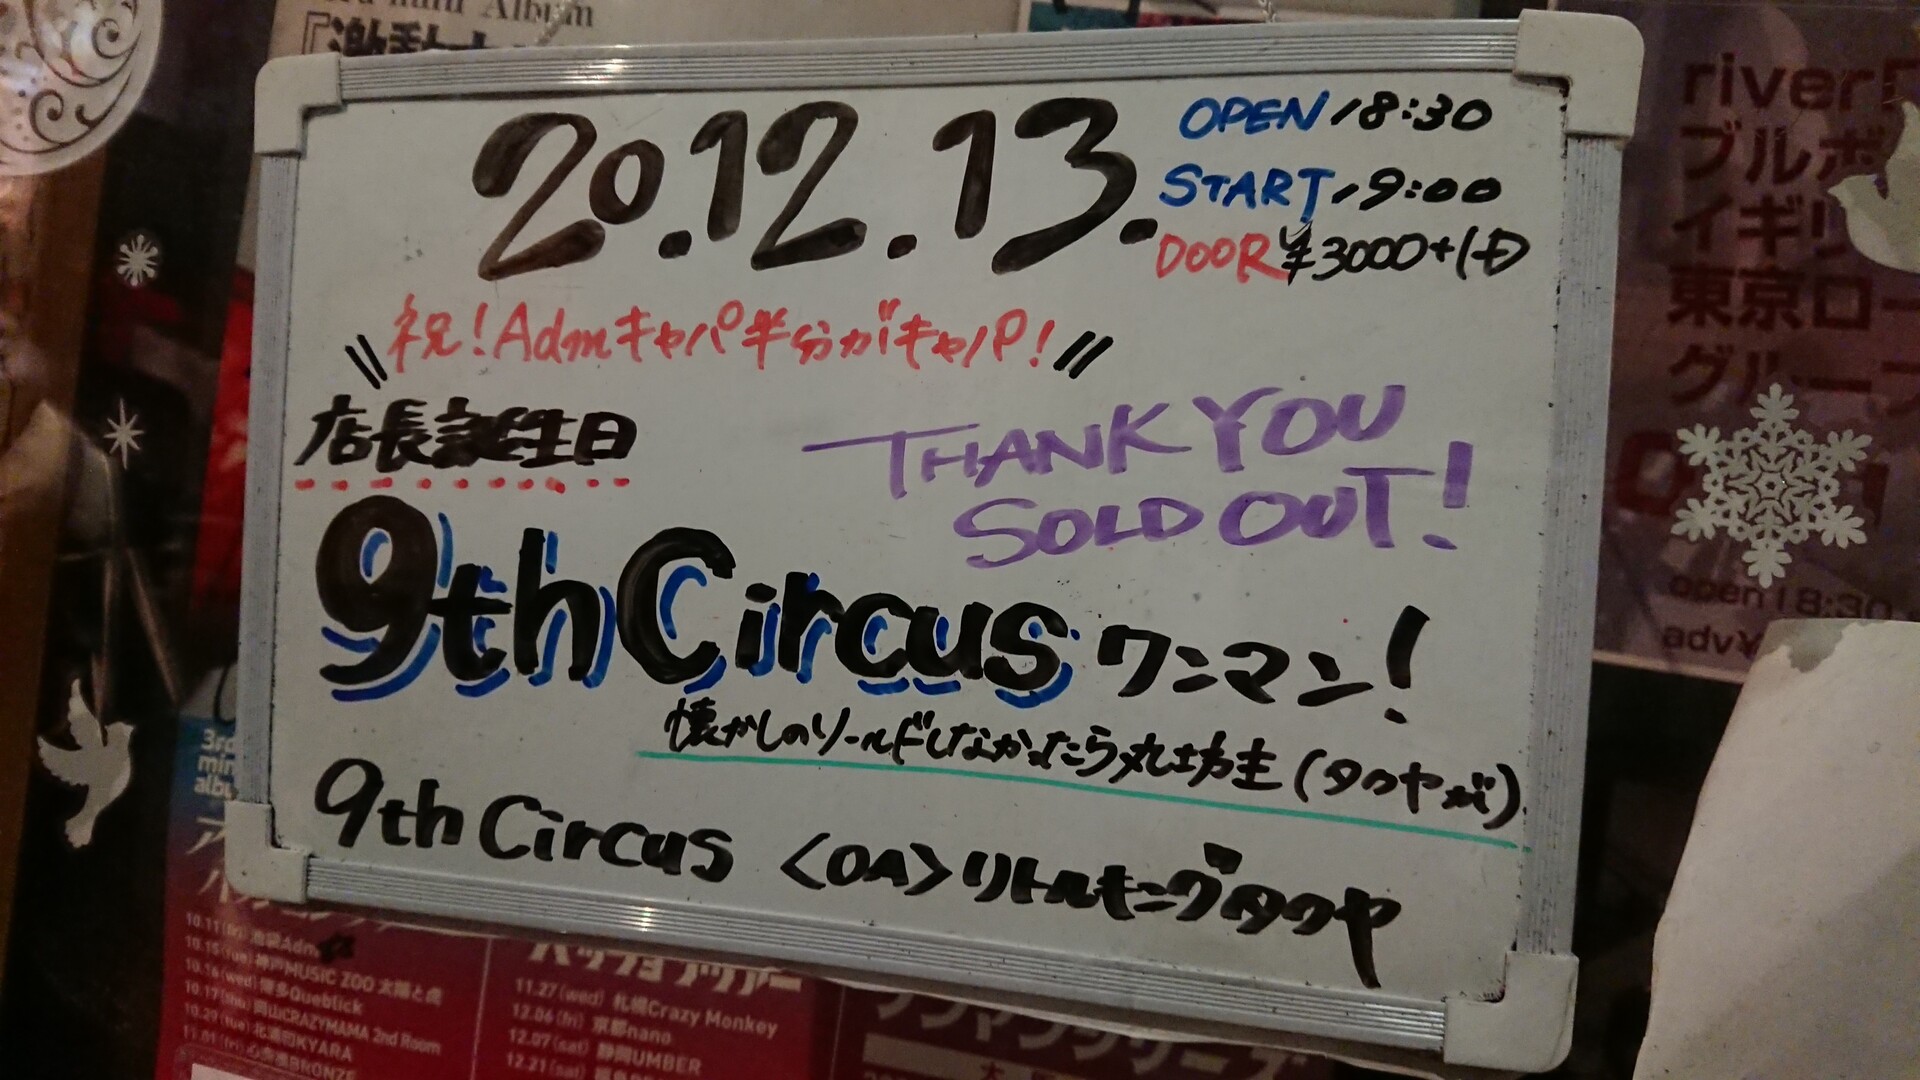 mini Album
20.12.13.
OPEN 18:30
START 19:00
DOOR ¥3000+1D
\\祝!Admキャパ半分がキャパ!//
店長誕生日
THANK YOU
SOLD OUT!
9th Circus ワンマン!
懐かしのソールドしなかったら丸坊主(タクヤが)
9th Circus <OA>リトルキングタクヤ
river
ブルボ
イギリ
東京ロー
グループ
open 18:30
adv¥
3rd
mini
albu
10.11(fri) 池袋Adm
10.15(tue) 神戸MUSIC ZOO 太陽と虎
10.16(wed) 博多Queblick
10.17(thu) 岡山CRAZYMAMA 2nd Room
10.29(tue) 北浦和KYARA
11.01(fri) 心斎橋BRONZE
11.27(wed) 札幌Crazy Monkey
12.06(fri) 京都nano
12.07(sat) 静岡UMBER
12.21(sat)